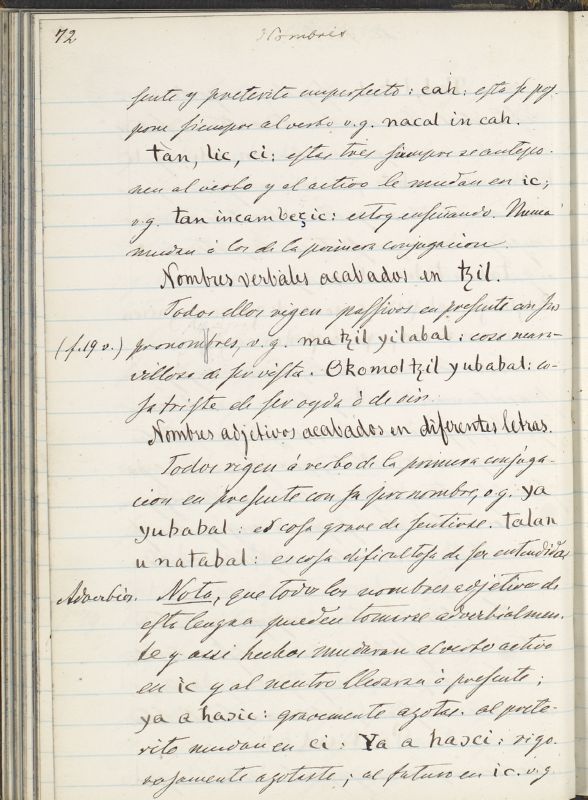 72
Nombres
sente y preterito imperfecto: cah: esta se pos-
pone siempre al verbo v.g. nacal in cah.
tan, lic, ci: estas tres siempre se antepo-
nen al verbo y al activo le mudan en ic;
v.g. tan incambeçic: estoy enseñando. Nunca
mudan á los de la primera conjugacion.
Nombres verbales acabados en tzil.
Todos ellos rigen passivos en presente con sus
(f. 19 v.) pronombres, v.g. ma tzil yilabal: cosa mara-
villosa de ser vista. Okomoltzil yubabal: co-
sa triste de ser oyda ò de oir.
Nombres adjetivos acabados en diferentes letras.
Todos rigen á verbo de la primera conjuga-
cion en presente con su pronombre, v.g. ya
yubabal: es cosa grave de sentirse. talan
u natabal: es cosa dificultosa de ser entendida.
Adverbios. Nota, que todos los nombres adjetivos de
esta lengua pueden tomarse adverbialmen-
te y assi hechos mudaran al verbo activo
en ic y al neutro llevaran á presente;
ya a haɔic: gravemente azotas. al prete-
rito mudan en ci: Ya a haɔci: rigo-
rosamente azotaste; al futuro en ic. v.g.